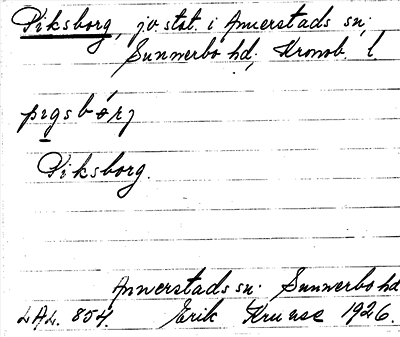 Piksborg, jvstat. i Annerstads sn;
Sunnerbo hd, Kronob. l.
pigsbórj
Piksborg.
Annerstads sn. Sunnerbo hd
LAL. 854. Erik Kruuse 1926.